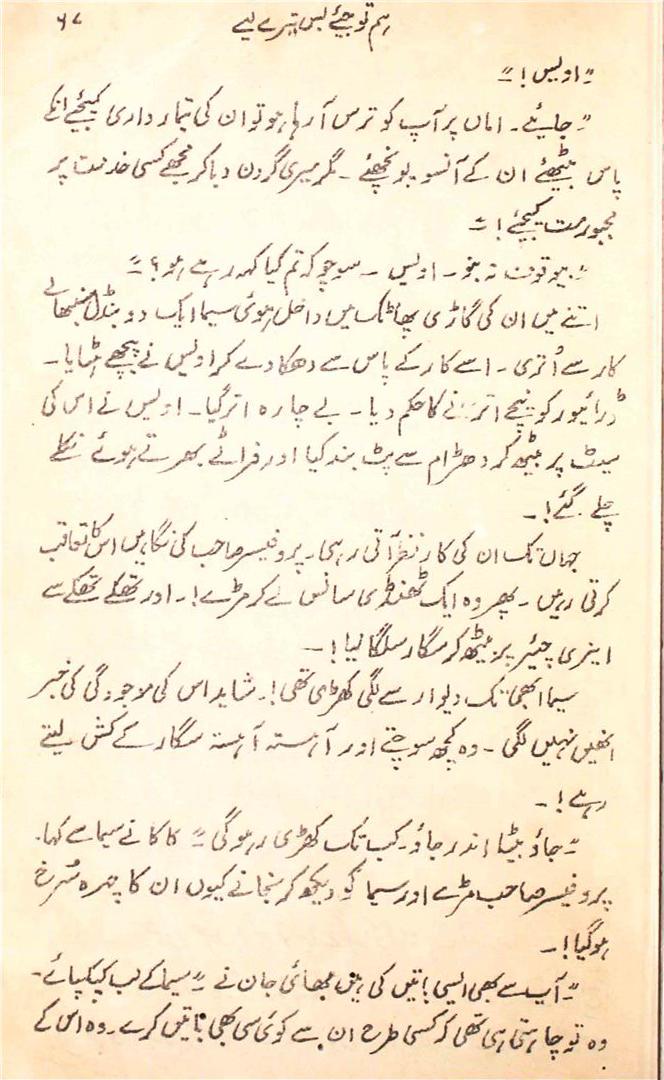 ہم تو جئے بس تیرے لیے ۶۷
"اویس!"
"جائیے۔ اماں پر آپ کو ترس آ رہا ہو تو ان کی تیمار داری کیجئے انکے
پاس بیٹھئے ان کے آنسو پونچھئے۔ مگر میری گردن دبا کر مجھے کسی خدمت پر
مجبور مت کیجئے!"
"بیوقوف نہ بنو۔ اویس۔ سوچو کہ تم کیا کہہ رہے ہو؟"
اتنے میں ان کی گاڑی پھاٹک میں داخل ہوئی سیما ایک دو بنڈل سنبھالے
کار سے اُتری۔ اسے کار کے پاس سے دھکا دے کر اویس نے پیچھے ہٹایا۔
ڈرائیور کو نیچے اترنے کا حکم دیا۔ بے چارہ اتر گیا۔ اویس نے اس کی
سیٹ پر بیٹھ کر دھڑام سے پٹ بند کیا اور فراٹے بھرتے ہوئے نکلے
چلے گئے!۔
جہاں تک ان کی کار نظر آتی رہی۔ پروفیسر صاحب کی نگاہیں اس کا تعاقب
کرتی رہیں۔ پھر وہ ایک ٹھنڈی سانس لے کر مڑے!۔ اور تھکے تھکے سے
ایزی چیئر پر بیٹھ کر سگار سلگا لیا!۔
سیما ابھی تک دیوار سے لگی کھڑی تھی!۔ شاید اس کی موجودگی کی خبر
انھیں نہیں لگی۔ وہ کچھ سوچتے اور آہستہ آہستہ سگار کے کش لیتے
رہے!۔
"جاؤ بیٹا اندر جاؤ۔ کب تک کھڑی رہو گی" کاکا نے سیما سے کہا۔
پروفیسر صاحب مڑے اور سیما کو دیکھ کر نجانے کیوں ان کا چہرہ سُرخ
ہو گیا!۔
"آپ سے بھی ایسی باتیں کی ہیں بھائی جان نے" سیما کے لب کپکپائے۔
وہ تو چاہتی ہی تھی کہ کسی طرح ان سے کوئی سی بھی باتیں کرے۔ وہ اس کے